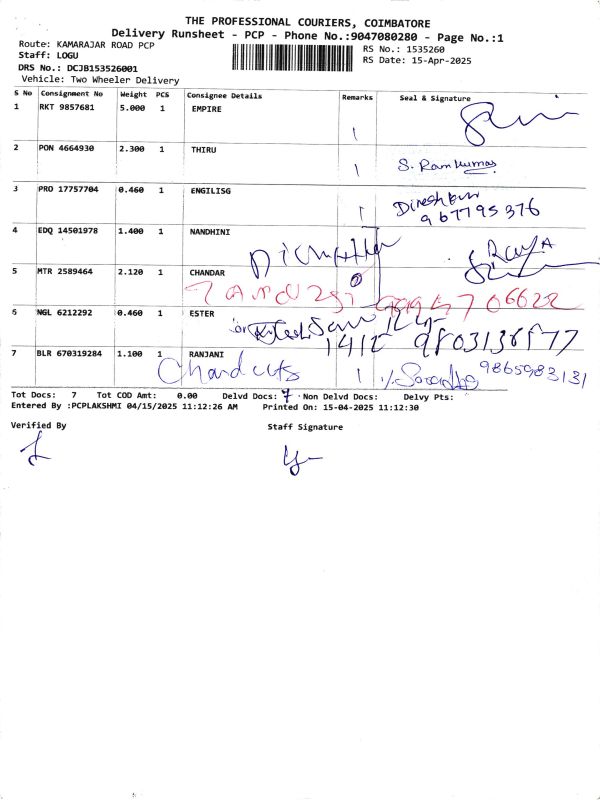 THE PROFESSIONAL COURIERS, COIMBATORE
Delivery Runsheet - PCP - Phone No.:9047080280 - Page No.:1
Route: KAMARAJAR ROAD PCP
RS No.: 1535260
Staff: LOGU
RS Date: 15-Apr-2025
DRS No.: DCJB153526001
Vehicle: Two Wheeler Delivery
S No Consignment No Weight PCS Consignee Details Remarks Seal & Signature
1 RKT 9857681 5.000 1 EMPIRE
2 PON 4664930 2.300 1 THIRU S. Ramkumar
3 PRO 17757704 0.460 1 ENGILISG
967795376
4 EDQ 14501978 1.400 1 NANDHINI
5 MTR 2589464 2.120 1 CHANDAR
9994706622
6 NGL 6212292 0.460 1 ESTER
1412 9803136577
7 BLR 670319284 1.100 1 RANJANI
9865983131
Tot Docs: 7 Tot COD Amt: 0.00 Delvd Docs: 7 Non Delvd Docs: Delvy Pts:
Entered By :PCPLAKSHMI 04/15/2025 11:12:26 AM Printed On: 15-04-2025 11:12:30
Verified By Staff Signature